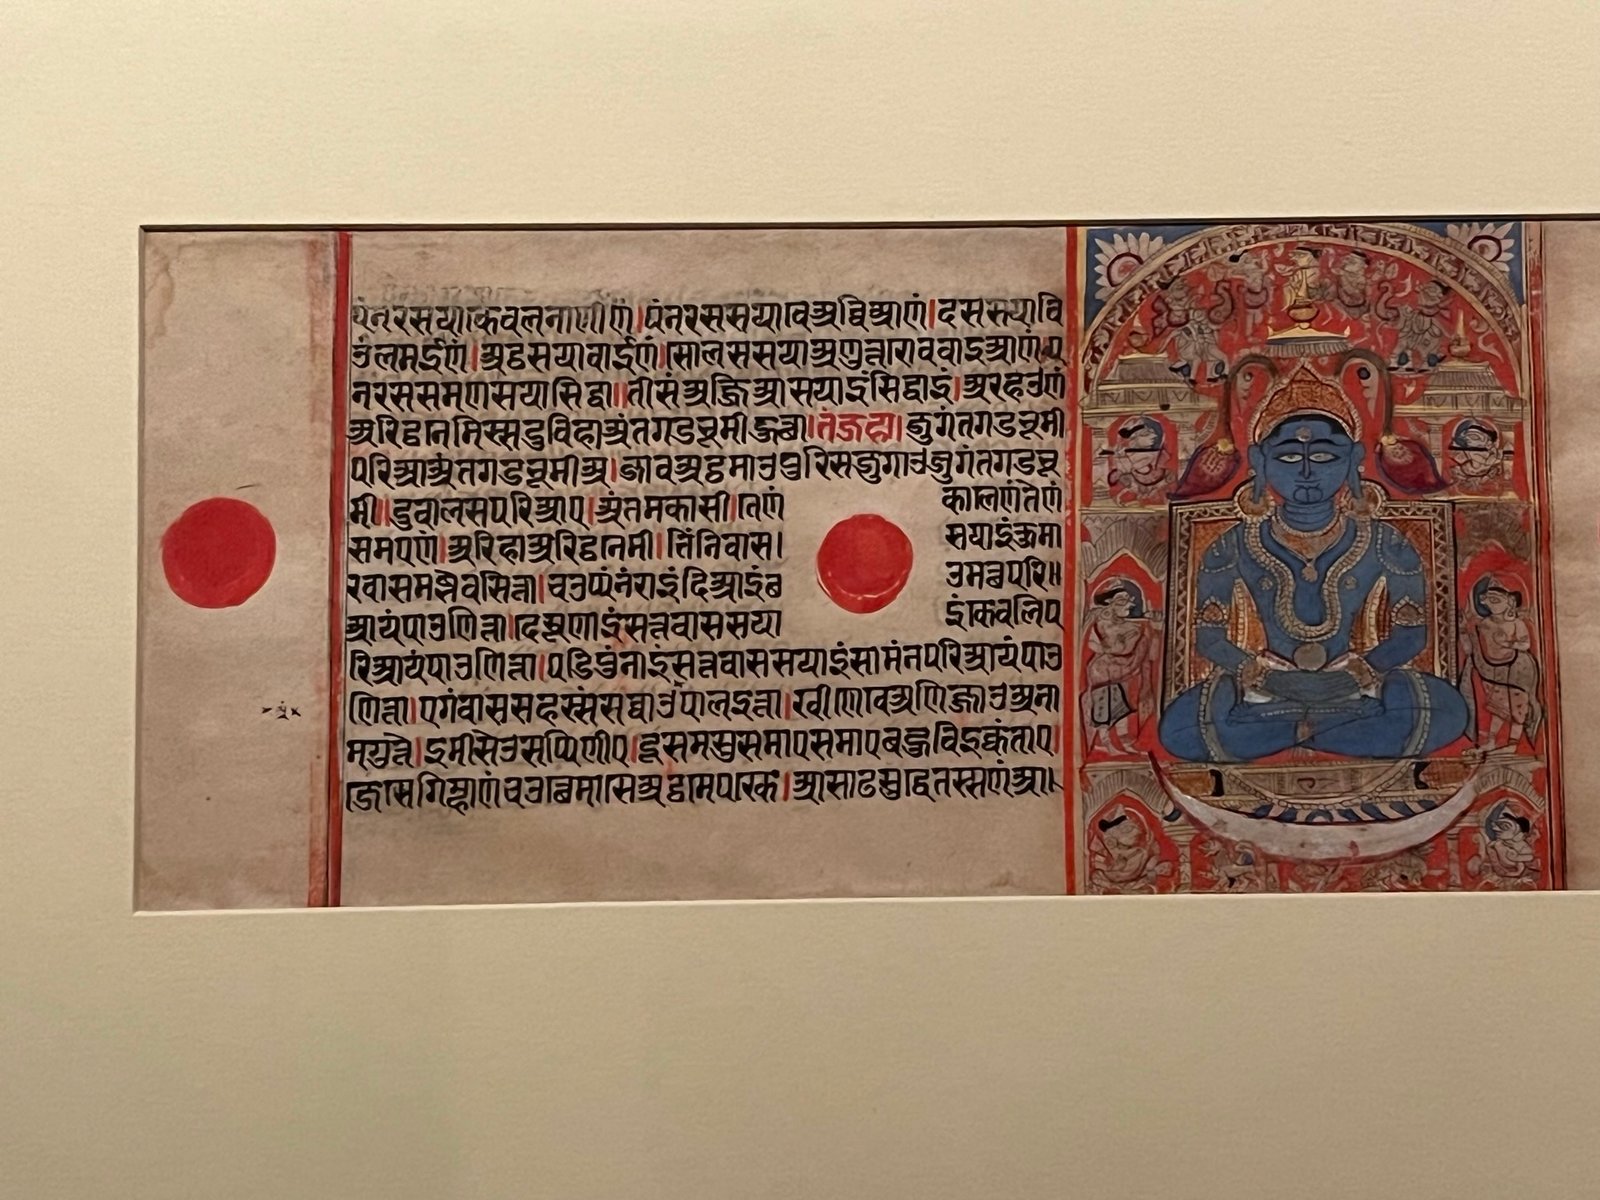 पंनरससयाकेवलनाणीणं।पंनरससयावेअव्विआणं।दससयावि
उलमईणं।अट्ठसयावाईणं।सोलससयाअणुत्तरोववाइआणं।प
नरससमणसयासिद्धा॥तीसंअज्जिआसयाइंसिद्धाइं।अरहउणं
अरिट्ठनेमिस्सदुविहाअंतगडभूमीहुत्था।तंजहा।जुगंतगडभूमी
परिआअंतगडभूमीअ।जावअट्ठमाउपुरिसजुगाउजुगंतगडभू
मी॥दुवालसपरिआए।अंतमकासी।तेणं कालेणंतेणं
समएणं।अरिहाअरिट्ठनेमी।तिंनिवास। सयाइंकुमा
रवासमज्झेवसित्ता।चउप्पंनंराइंदिआइंछ उमत्थपरि॥
आयंपाउणित्ता।देसूणाइंसत्तवाससया इंकेवलिप
रिआयंपाउणित्ता।पडिपुंनाइंसत्तवाससयाइंसामंनपरिआयंपाउ
णित्ता।एगंवाससहस्संसव्वाउंपालइत्ता।खीणेवेअणिज्जाउअना
मगुत्ते।इमीसेउसप्पिणीए।दूसमसुसमाएसमाएबहुविइक्कंताए।
जेसेगिम्हाणंचउत्थेमासेअट्ठमेपरके।आसाढसुद्धेतस्सणंआ।